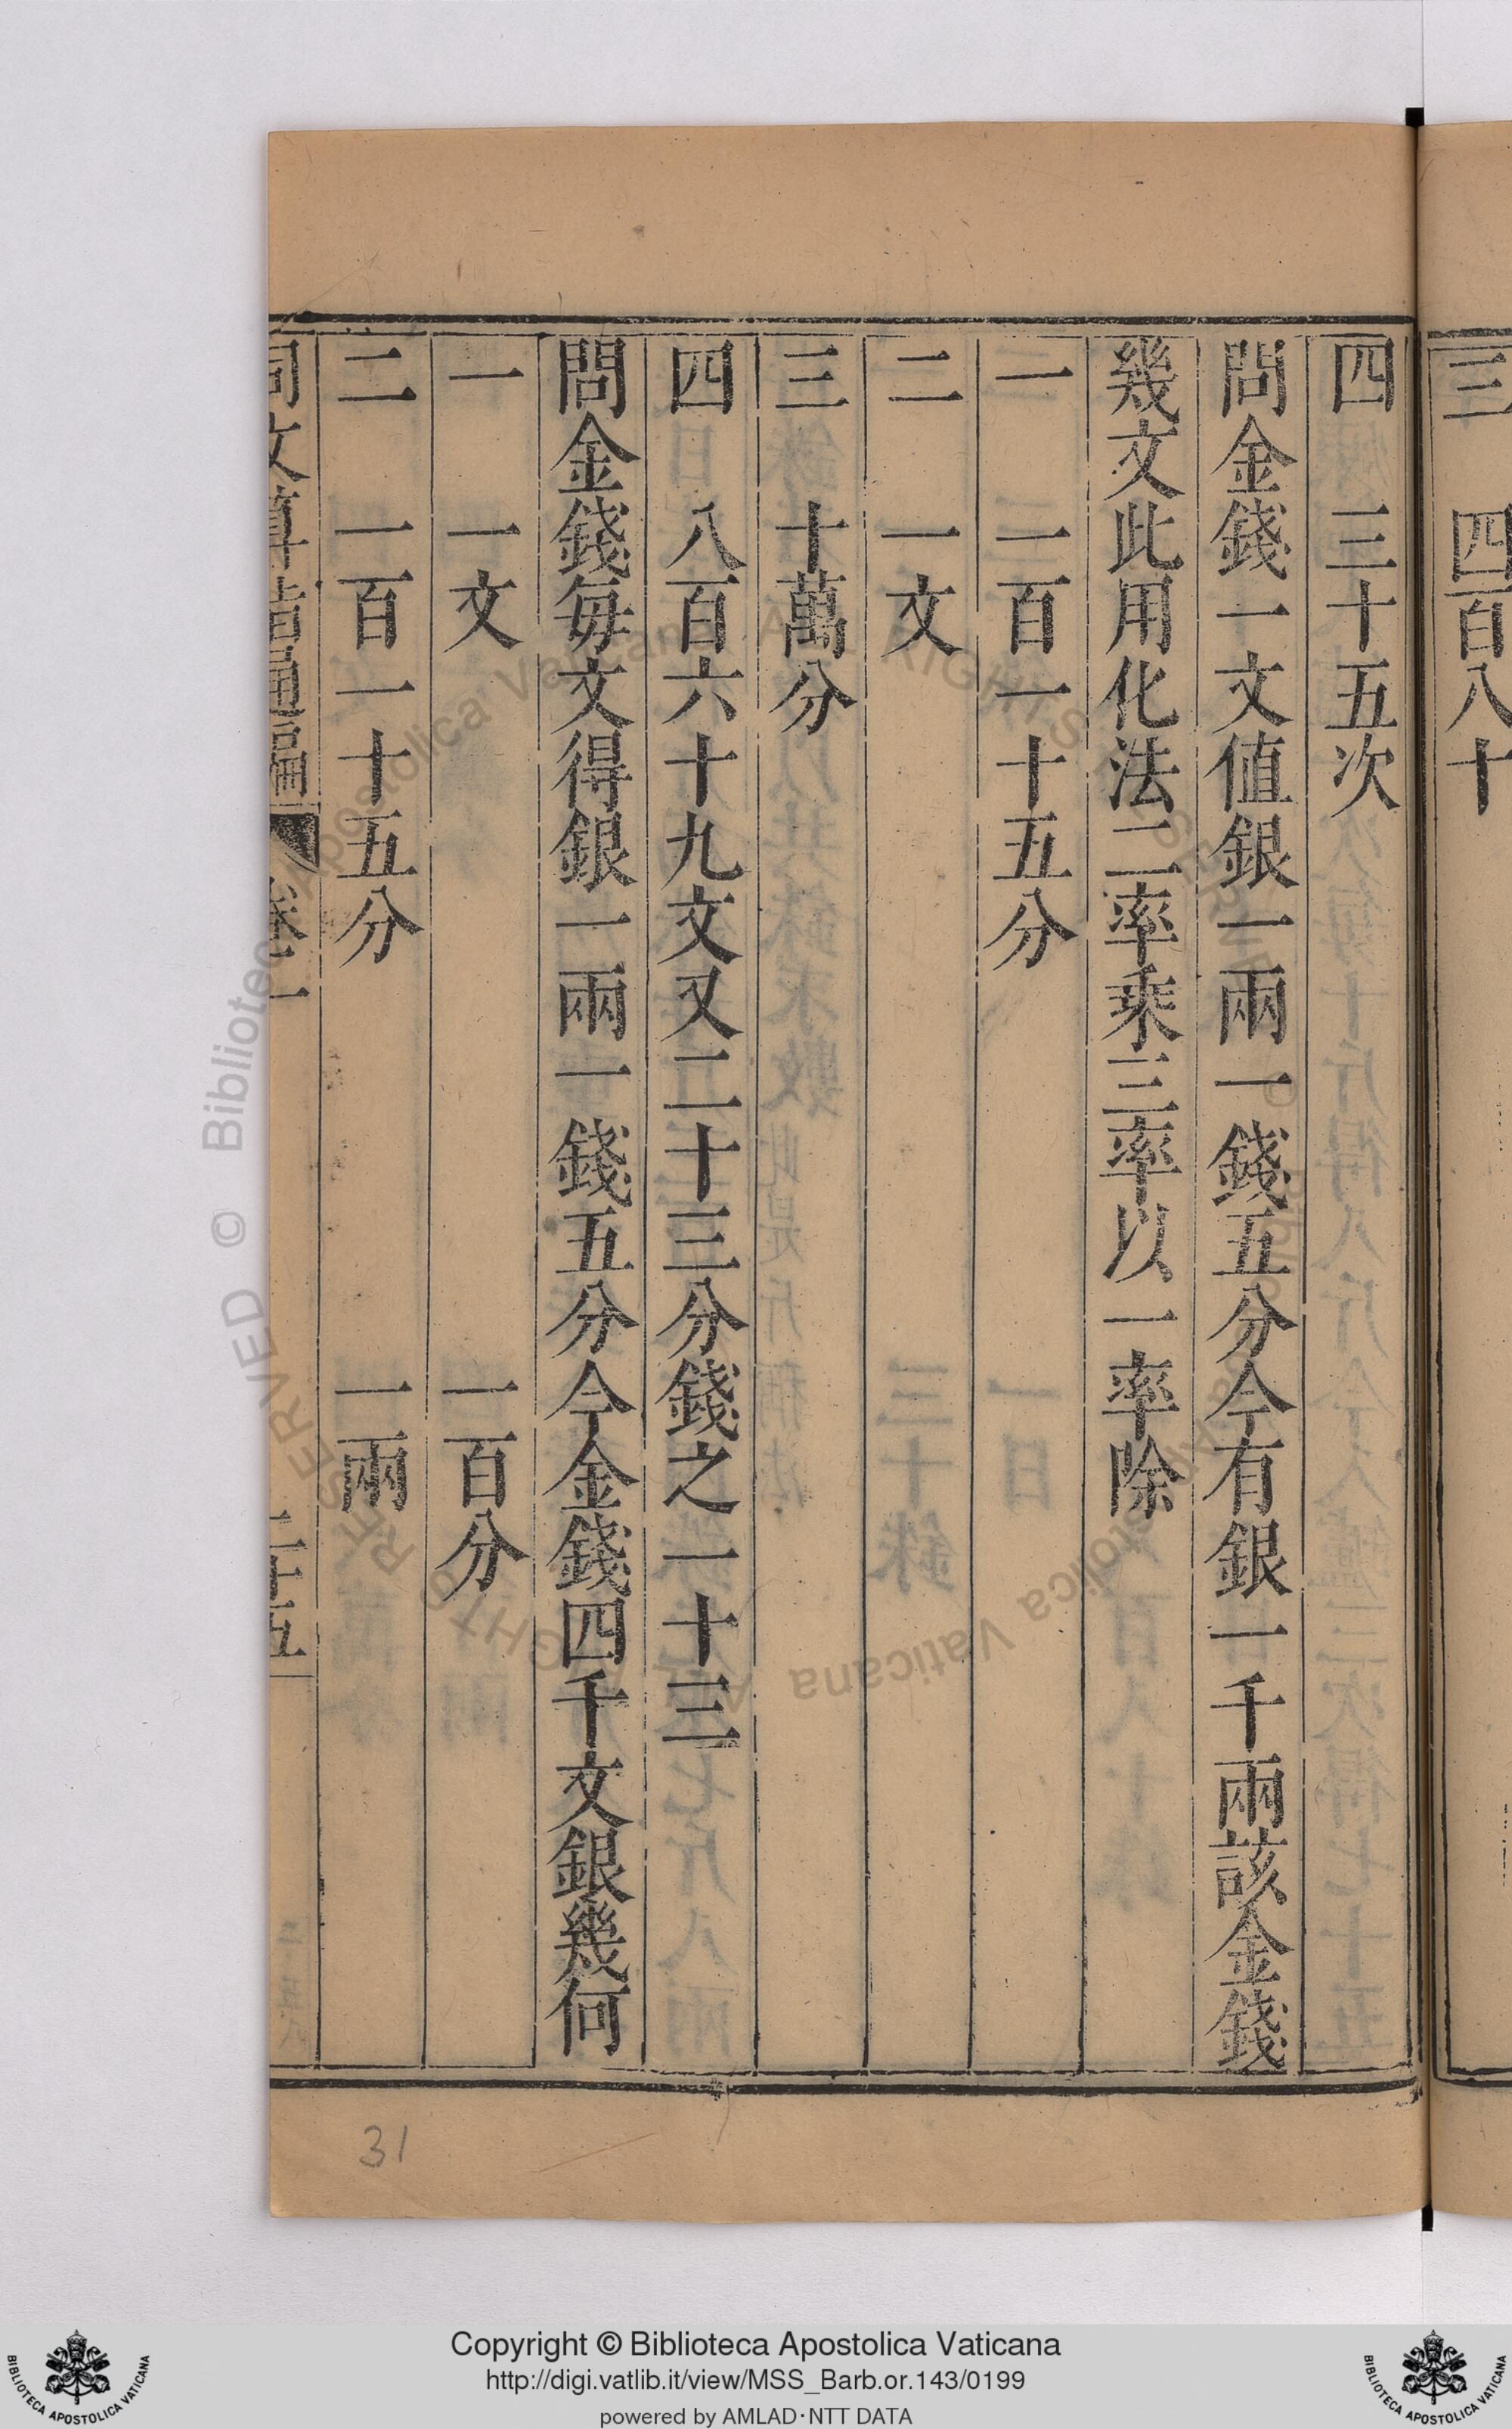 三 四百八十
四 三十五次
問金錢一文值銀一兩一錢五分今有銀一千兩該金錢
幾文此用化法二率乘三率以一率除
一 一百一十五分
二 一文
三 十萬分
四 八百六十九文又二十三分錢之一十三
問金錢每文得銀一兩一錢五分今金錢四千文銀幾何
一 一文 一百分
二 一百一十五分 一兩
同文算指通編 卷一 二十五
31
© Biblioteca Apostolica Vaticana ALL RIGHTS RESERVED
Copyright © Biblioteca Apostolica Vaticana
http://digi.vatlib.it/view/MSS_Barb.or.143/0199
powered by AMLAD·NTT DATA
BIBLIOTECA APOSTOLICA VATICANA
BIBLIOTECA APOSTOLICA VATICANA